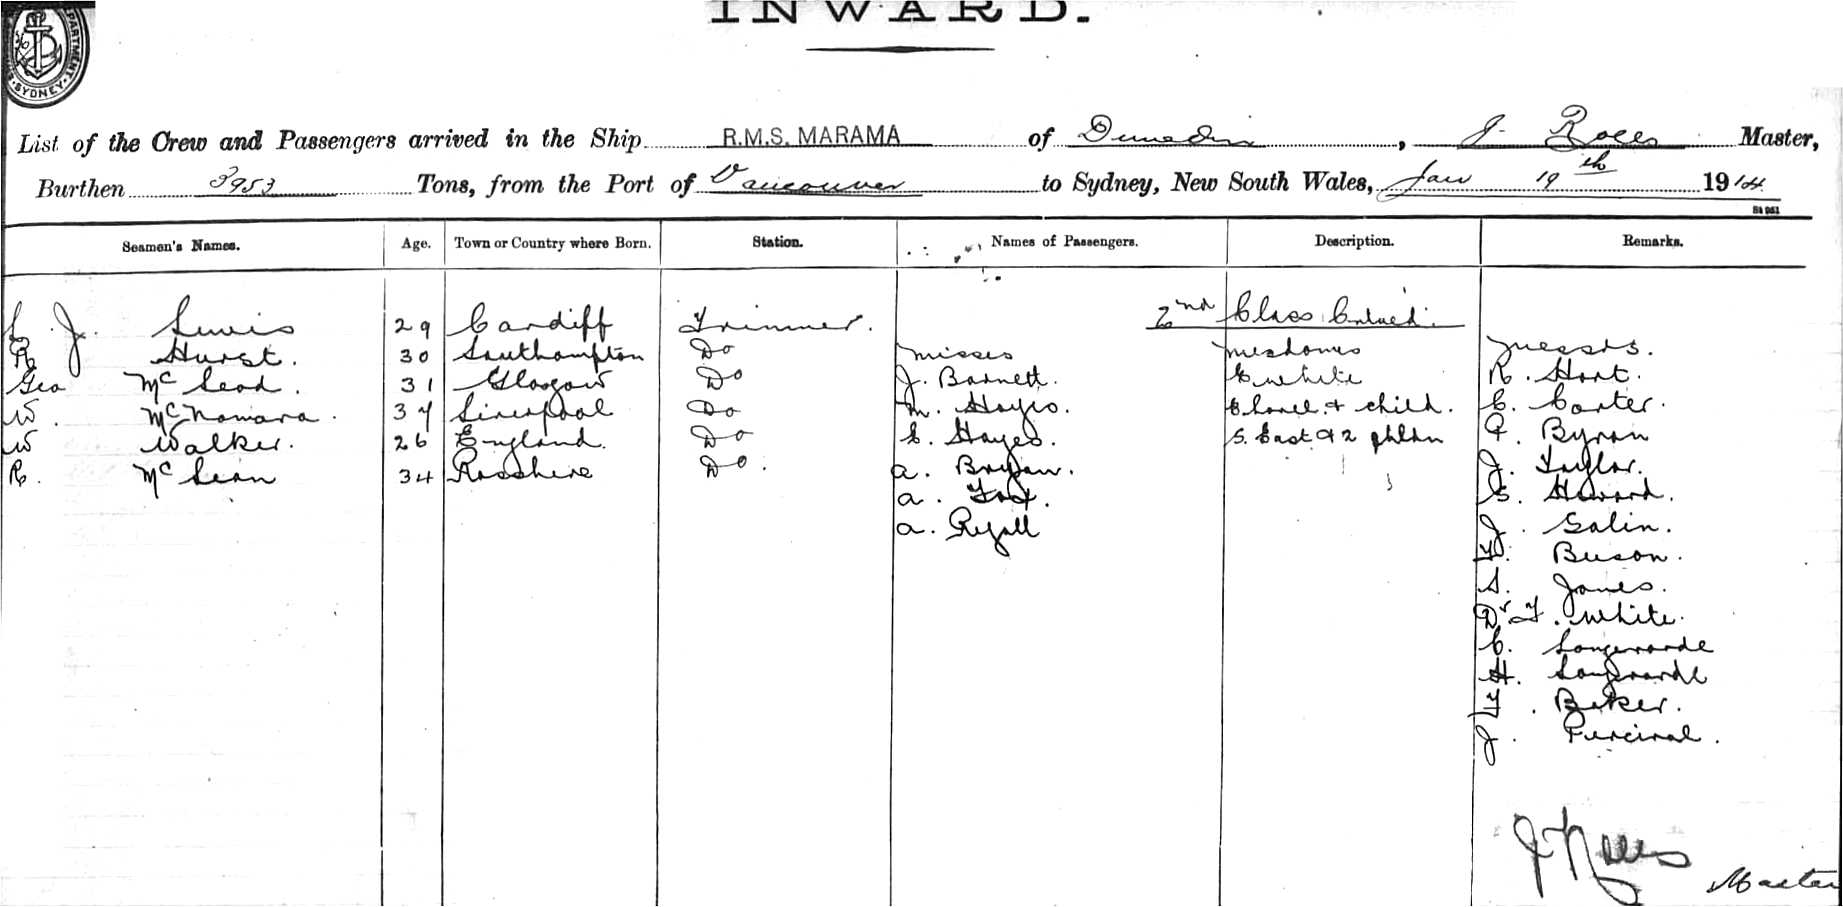 INWARD.
DEPARTMENT. SYDNEY.
List of the Crew and Passengers arrived in the Ship R.M.S. MARAMA of Dunedin, J. Rolls Master,
Burthen 3953 Tons, from the Port of Vancouver to Sydney, New South Wales, Jan 19th 1914
Seamen's Names. Age. Town or Country where Born. Station. Names of Passengers. Description. Remarks.
J. Lewis 29 Cardiff Trimmer. 2nd Class
R Hurst. 30 Southampton Do Misses Mesdames Messrs.
Geo McLeod. 31 Glasgow Do J. Barnett. E White R. Hart.
W. McNamara. 37 Liverpool Do M. Hayes. & child. C. Carter.
W Walker. 26 England. Do C. Hayes. S. East & 2 Byron
R. McLean 34 Rosshire Do. A. Bryan. J. Taylor.
A. Fox. S. Howard.
A. Ryall J. Galin.
Buson.
S. Jones.
Dr. T. White.
C. Longworde
H. Longworde
Baker.
J. Percival.
Master